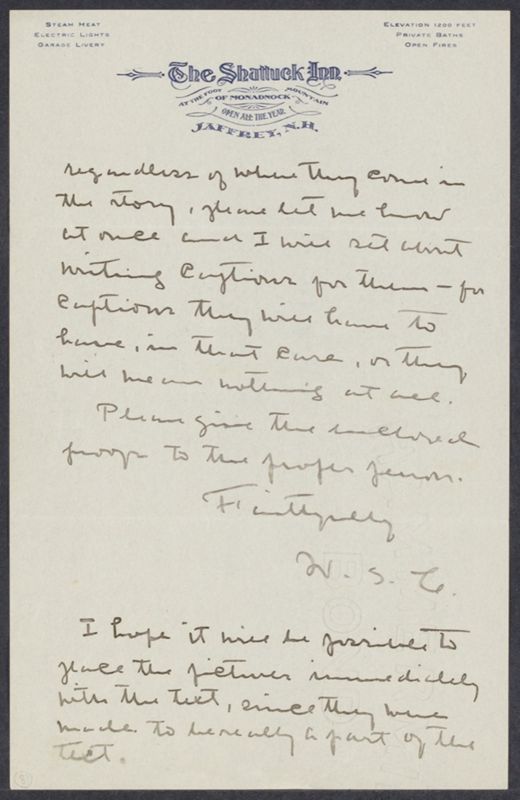 STEAM HEAT
ELECTRIC LIGHTS
GARAGE LIVERY
ELEVATION 1200 FEET
PRIVATE BATHS
OPEN FIRES
The Shattuck Inn
AT THE FOOT OF MONADNOCK MOUNTAIN
OPEN ALL THE YEAR
JAFFREY, N.H.
regardless of where they come in
the story, please let me know
at once and I will set about
writing captions for them – for
captions they will have to
have, in that case, or they
will mean nothing at all.
Please give the enclosed
proofs to the proper person.
Faithfully
W. S. C.
I hope it will be possible to
place the pictures immediately
with the text, since they were
made to be really a part of the
text.